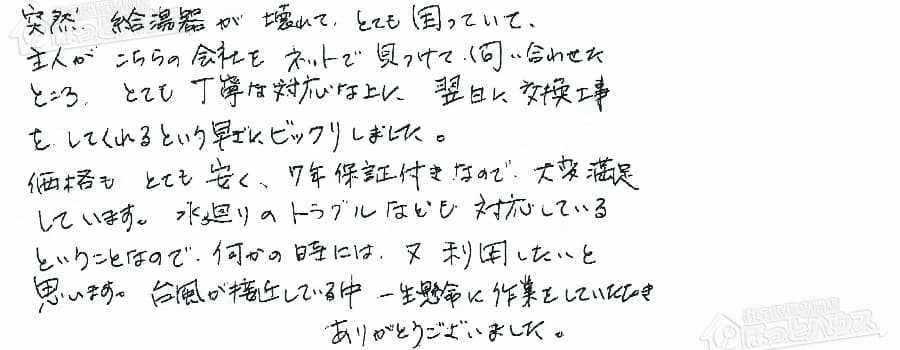 突然、給湯器が壊れて、とても困っていて、
主人がこちらの会社をネットで見つけて、伺い合わせた
ところ、とても丁寧な対応な上に、翌日に交換工事
をしてくれるという早さにビックリしました。
価格もとても安く、7年保証付きなので、大変満足
しています。水廻りのトラブルなども対応している
ということなので、何かの時には、又利用したいと
思います。台風が接近している中一生懸命に作業をしていただき
ありがとうございました。
ほっとハウス